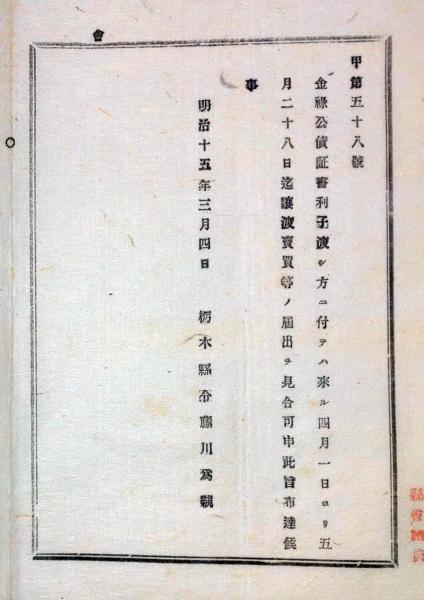 甲第五十八號
金祿公債証書利子渡シ方ニ付テハ來ル四月一日ヨリ五
月二十八日迄讓渡賣買等ノ届出ヲ見合可申此旨布達候
事
明治十五年三月四日 栃木縣令藤川爲親
會
縣會議員